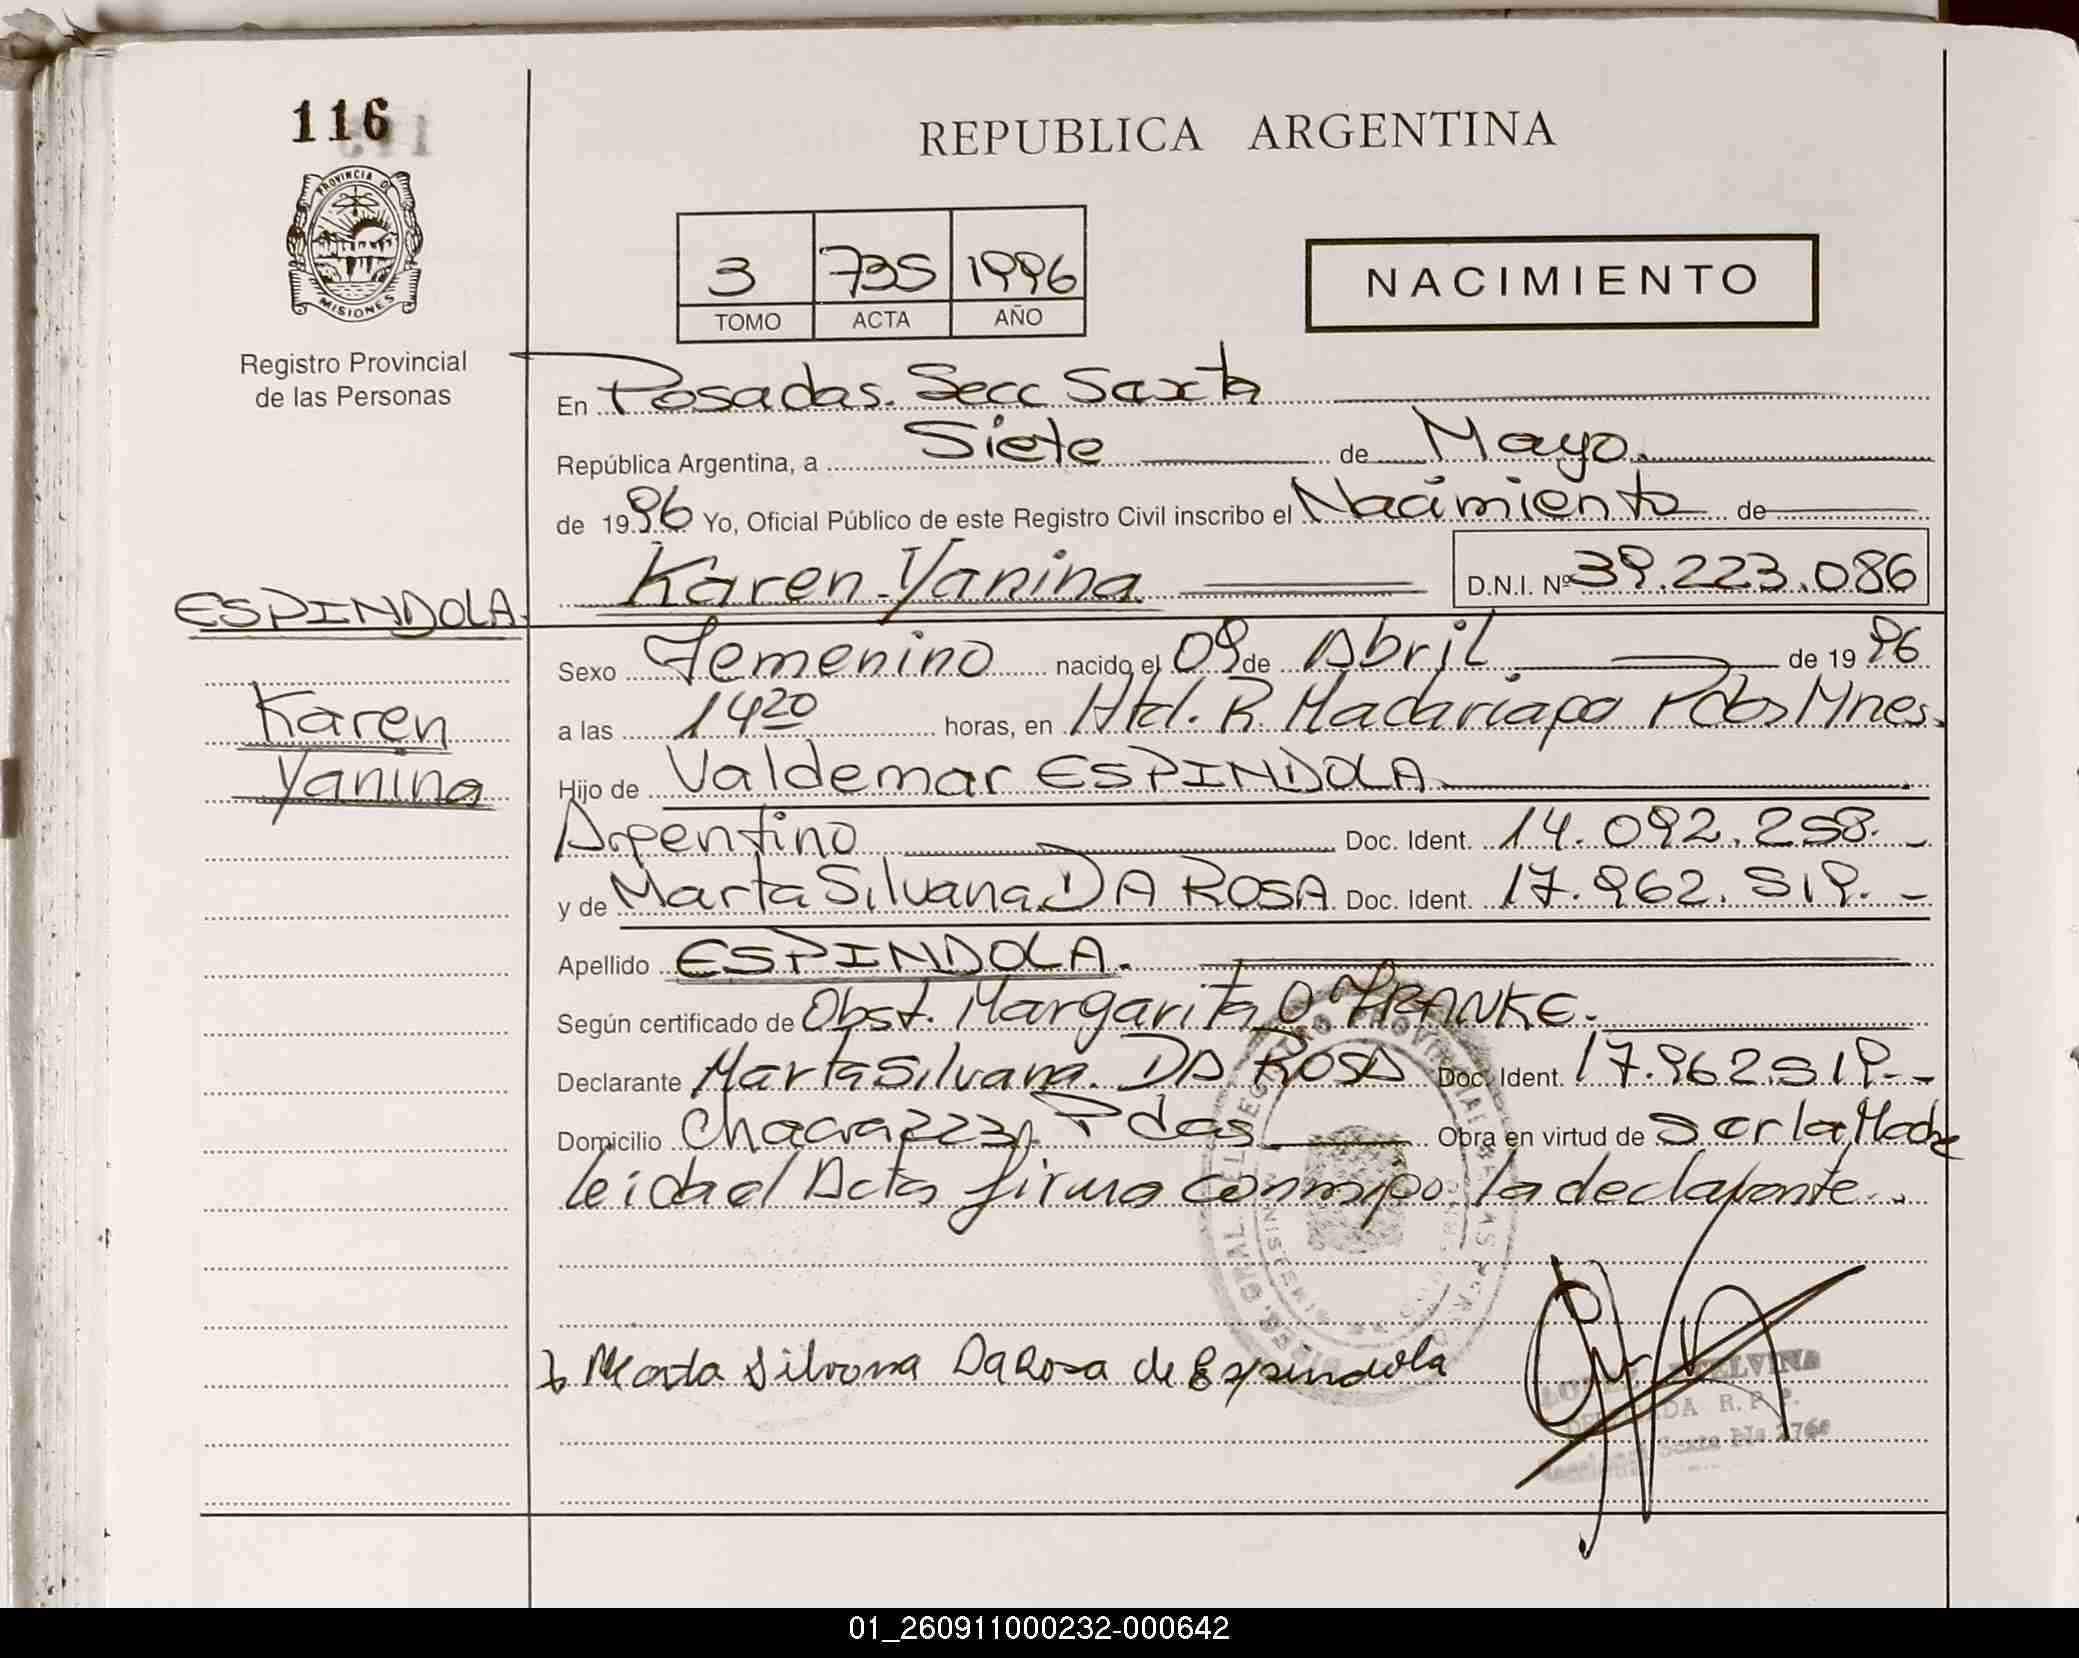 116
REPUBLICA ARGENTINA
PROVINCIA DE
MISIONES
Registro Provincial
de las Personas
3 735 1996
TOMO ACTA AÑO
NACIMIENTO
En Posadas. Secc Sexta
República Argentina, a Siete de Mayo.
de 1996 Yo, Oficial Público de este Registro Civil inscribo el Nacimiento de
Karen Yanina D.N.I. Nº 39.223.086
ESPINDOLA.
Karen
Yanina
Sexo Femenino nacido el 09 de Abril de 1996
a las 14 20 horas, en Htal. R. Madariaga Pdas Mnes.
Hijo de Valdemar ESPINDOLA
Argentino Doc. Ident. 14.092.258.-
y de Marta Silvana DA ROSA Doc. Ident. 17.962.519.-
Apellido ESPINDOLA.
Según certificado de Obst. Margarita O FRANKE.
Declarante Marta Silvana DA ROSA Doc. Ident. 17.962.519.-
Domicilio Chacra 223, Pdas Obra en virtud de Ser la Madre
leida el Acta firma conmigo la declarante.
Marta Silvana Da Rosa de Espindola
ELVINA
R. P. P.
01_260911000232-000642